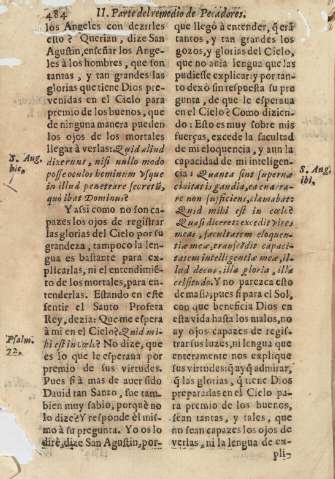 484 II. Parte del remedio de Pecadores.
los Angeles con dezirles
esto? Querian, dize San
Agustin, enseñar los Ange-
les à los hombres, que son
tantas, y tan grandes las
glorias que tiene Dios pre-
venidas en el Cielo para
premio de los buenos, que
de ninguna manera pueden
los ojos de los mortales
llegar à verlas: Quid aliud
dixerunt, nisi nullo modo
posse oculos hominum usque
in illud penetrare secretũ,
quò ibat Dominus?
S. Aug.
hic.
Y assi como no son ca-
pazes los ojos de registrar
las glorias del Cielo por su
grandeza, tampoco la len-
gua es bastante para ex-
plicarlas, ni el entendimiẽ-
to de los mortales, para en-
tenderlas. Estando en este
sentir el Santo Profeta
Rey, dezia: Que me espera
à mi en el Cielo? Quid mi-
hi est in cœlo? No dize, que
es lo que le esperaua por
premio de sus virtudes.
Psalm.
72.
Pues si à mas de auer sido
Dauid tan Santo, fue tam-
bien muy sabio, porquè no
lo dize? Y responde èl mis-
mo à su pregunta. Yo os lo
dirè, dize San Agustin, por-
que llegò à entender, q̃ erã
tantos, y tan grandes los
gozos, y glorias del Cielo,
que no auia lengua que las
pudiesse explicar: y por tan-
to dexò sin respuesta su pre
gunta, de que le esperaua
en el Cielo? Como dizien-
do: Esto es muy sobre mis
fuerças, excede la facultad
de mi eloquencia, y aun la
capacidad de mi inteligen-
cia: Quanta sint supernæ
ciuitatis gaudia, ea enarra-
re non sufficiens, clamabat:
Quid mihi est in cœlo?
Quasi diceret: excedit vires
meas, facultatem eloquen-
tiæ meæ, transcẽdit capaci-
tatem intelligentiæ meæ, il-
lud decus, illa gloria, illa
celsitudo.
S. Aug.
ibi.
Y no parezca esto
demasia, pues si para el Sol,
con que beneficia Dios en
esta vida hasta los malos, no
ay ojos capazes de regis-
trar sus luzes, ni lengua que
enteramente nos explique
sus virtudes: q̃ ay q̃ admirar,
q̃ las glorias, q̃ tiene Dios
preparadas en el Cielo pa-
ra premio de los buenos,
sean tantas, y tales, que
no sean capazes los ojos de
verlas, ni la lengua de ex-
pli-